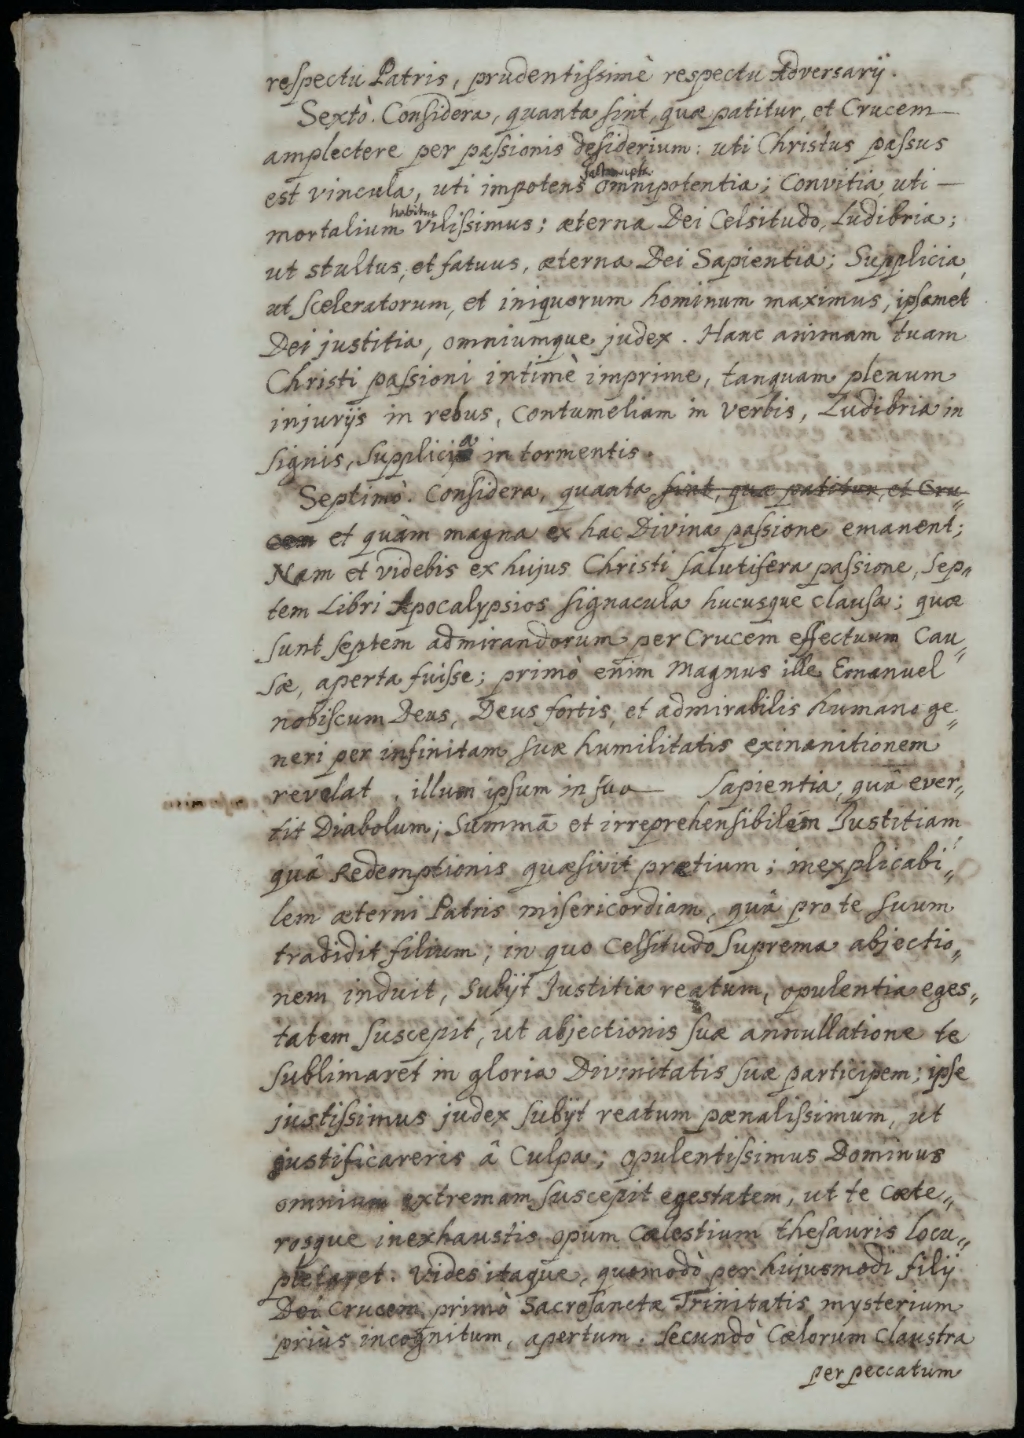 respectu Patris, prudentissimè respectu Adversarij.
Sextò. Considera, quanta sint, quæ patitur, et Crucem
amplectere per passionis desiderium: uti Christus passus
est vincula, uti impotens omnipotentia; Convitia uti
habitus
mortalium vilissimus; æterna Dei Celsitudo, Ludibria;
ut stultus, et fatuus, æterna Dei Sapientia; Supplicia,
ut sceleratorum, et iniquorum hominum maximus, ipsamet
Dei justitia, omniumque judex. Hanc animam tuam
Christi passioni intimè imprime, tanquam plenum
injurijs in rebus, Contumeliam in Verbis, Ludibria in
signis, Supplicia in tormentis.
Septimò. Considera, quanta sint, quæ patitur, et Cru„
cem et quàm magna ex hac Divina passione emanent;
Nam et videbis ex hujus Christi salutifera passione, Sep„
tem Libri Apocalypsios signacula hucusque clausa; quæ
sunt septem admirandorum per Crucem effectuum Cau„
sæ, aperta fuisse; primò enim Magnus ille Emanuel
nobiscum Deus, Deus fortis, et admirabilis humano ge„
neri per infinitam suæ humilitatis exinanitionem
revelat illum ipsum in sua Sapientia, quâ ever„
tit Diabolum; Summã et irreprehensibilem Justitiam
quâ Redemptionis quæsivit prætium; inexplicabi„
lem æterni Patris misericordiam, quâ pro te suum
tradidit filium; in quo Celsitudo Suprema abjectio„
nem induit, Subijt Justitia reatum, opulentia eges„
tatem suscepit, ut abjectionis suæ annullatione te
sublimaret in gloria Divinitatis suæ participem; ipse
justissimus judex subijt reatum pœnalissimum, ut
justificareris â Culpa; opulentissimus Dominus
omnium extremam suscepit egestatem, ut te cæte„
rosque inexhaustis opum Cœlestium thesauris locu„
pletaret. Vides itaque, quomodò per hujusmodi filij
Dei Crucem primò Sacrosanctæ Trinitatis mysterium
priùs incognitum, apertum. Secundò Cœlorum Claustra
per peccatum